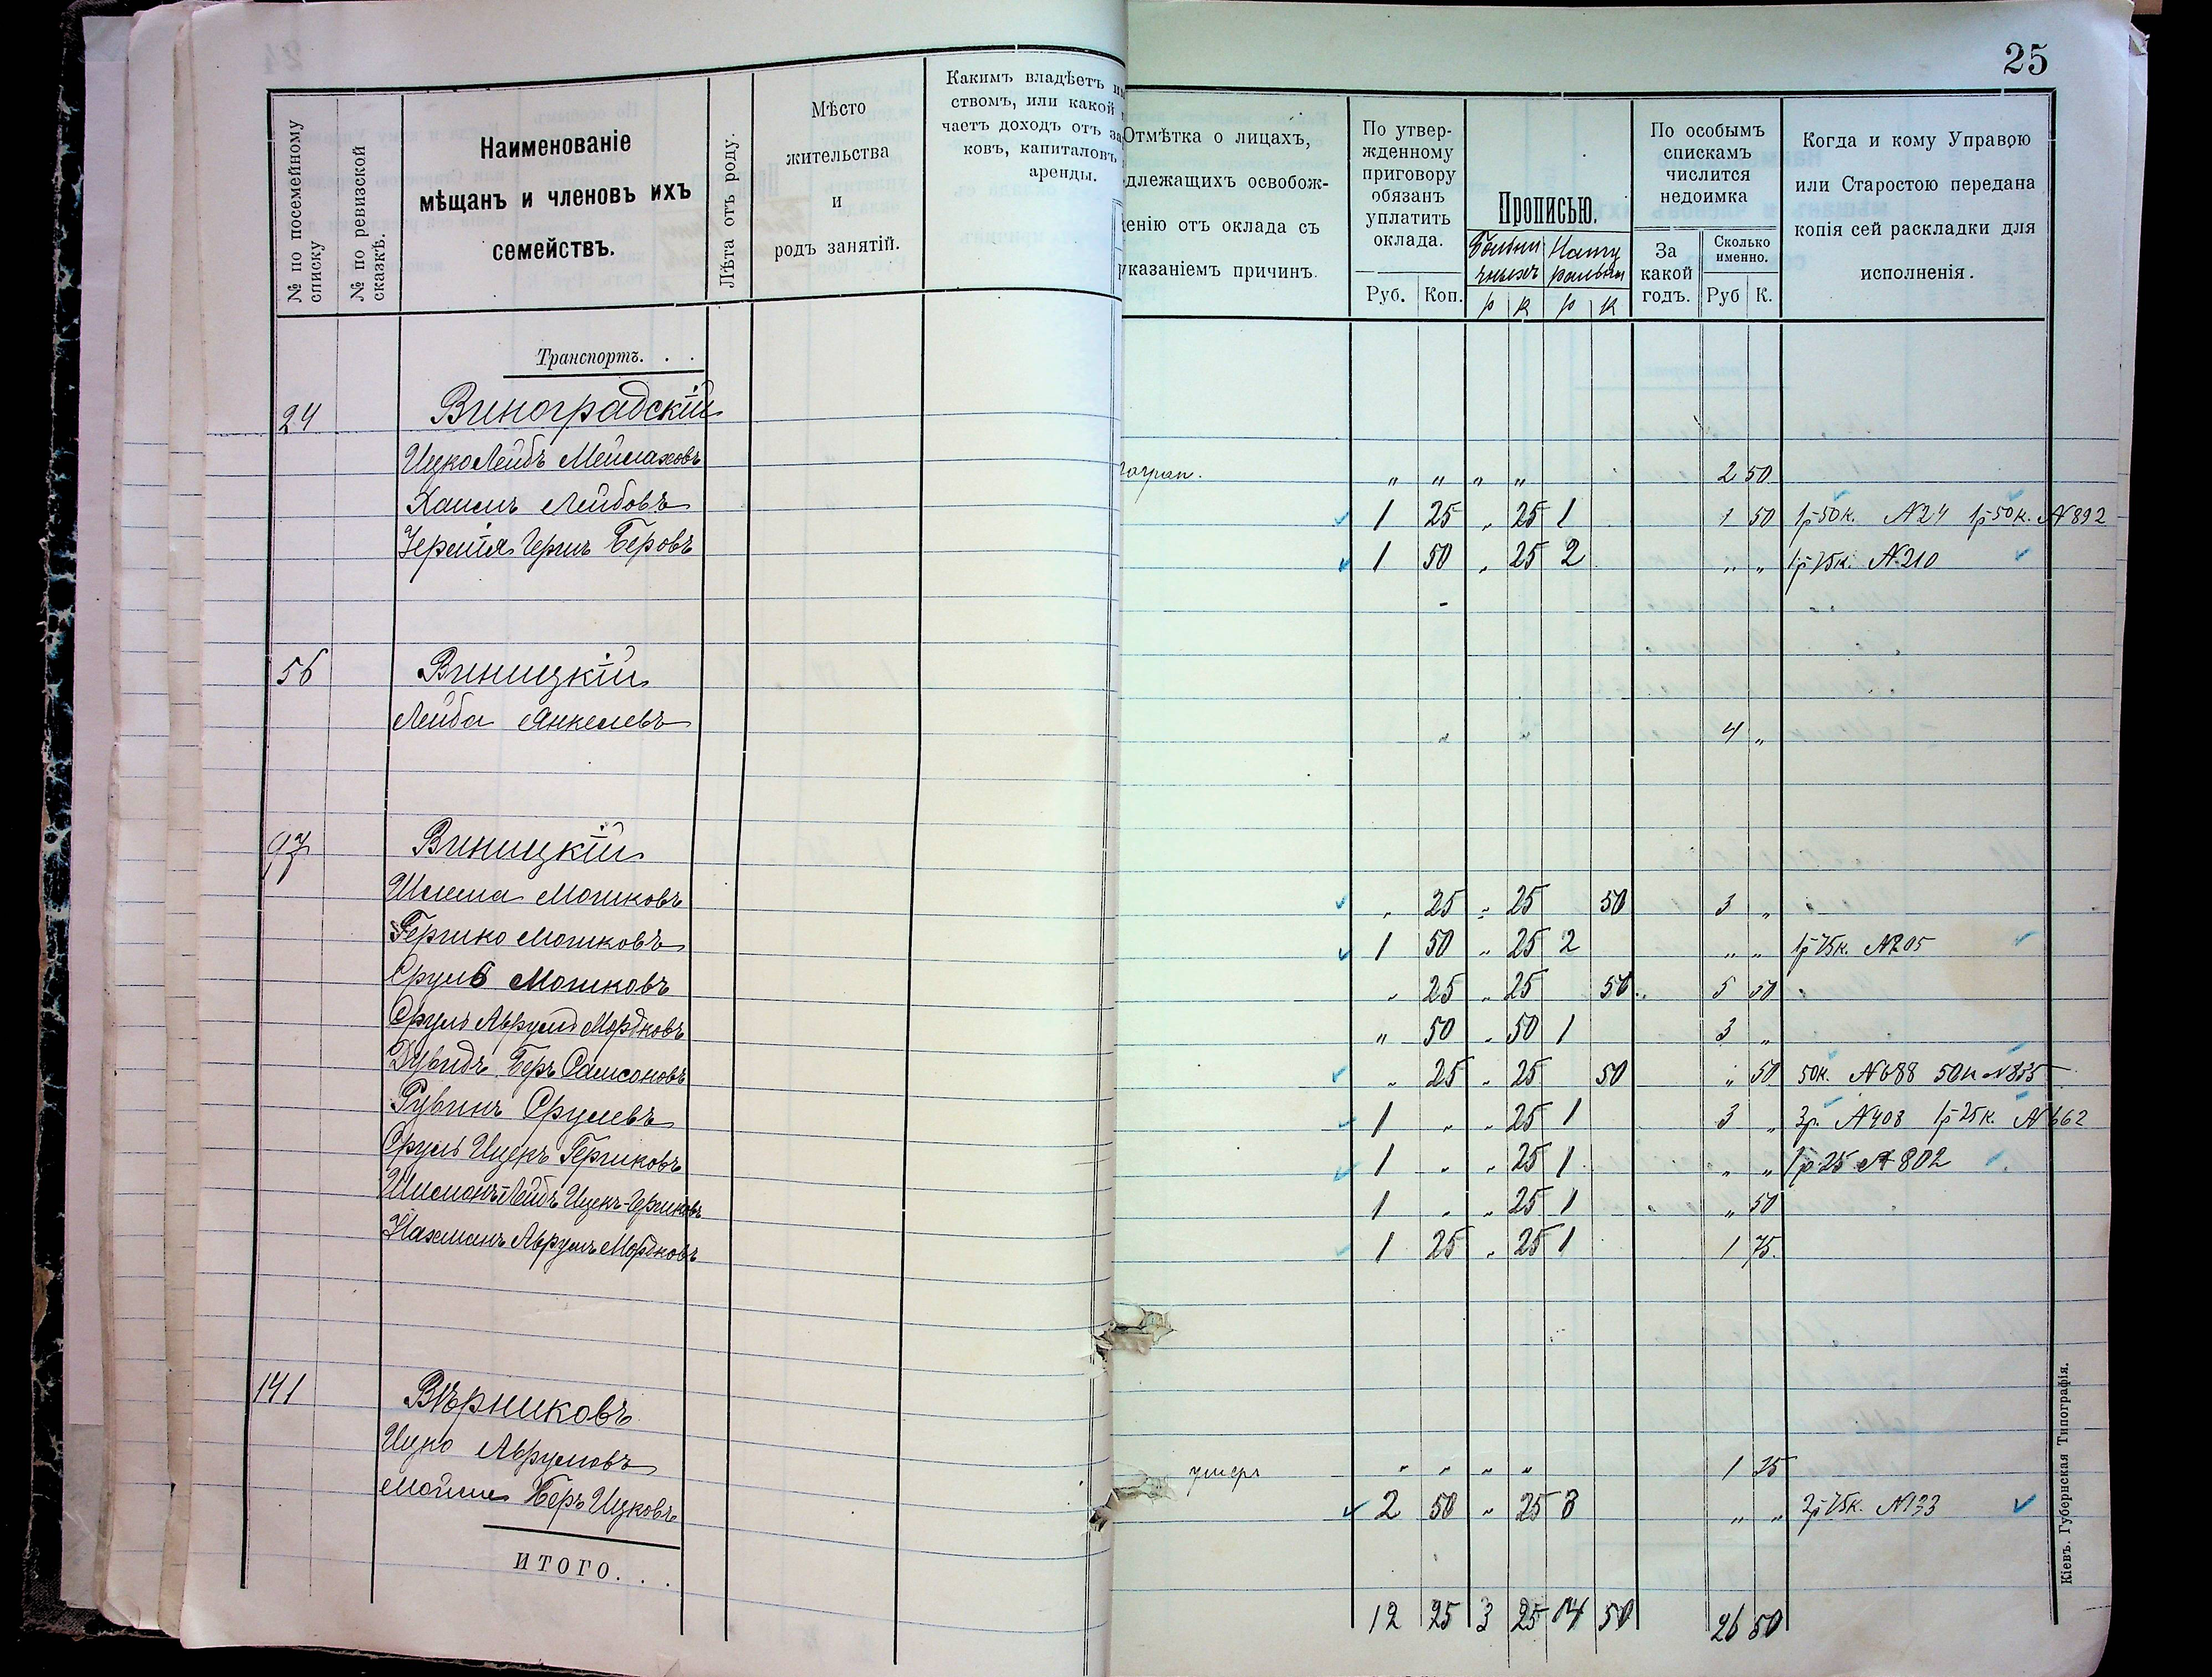 25
№ по посемейному списку
№ по ревизской сказкѣ.
Наименованіе
мѣщанъ и членовъ ихъ
семействъ.
Лѣта отъ роду.
Мѣсто
жительства
и
родъ занятій.
Какимъ владѣетъ
ствомъ, или какой
чаетъ доходъ отъ
ковъ, капиталовъ
аренды.
Отмѣтка о лицахъ,
длежащихъ освобож-
енію отъ оклада съ
указаніемъ причинъ.
По утвер-
жденному
приговору
обязанъ
уплатить
оклада.
Руб. Коп.
Прописью.
р к р к
По особымъ
спискамъ
числится
недоимка
За
какой
годъ.
Сколько
именно.
Руб К.
Когда и кому Управою
или Старостою передана
копія сей раскладки для
исполненія.
Транспортъ. . .
24 Виноградскій
Ицко Лейбъ Мейлаховъ " " " " 2 50
Хаимъ Лейбовъ 1 25 " 25 1 1 50 1р 50к. №24 1р 50к. №892
Гершъ Беровъ 1 50 " 25 2 " " 1р 75к. №210
56 Виницкій
Лейба Янкелевъ " " 4 "
97 Виницкій
Шлема Мошковъ " 25 " 25 50 3 "
Гершко Мошковъ 1 50 " 25 2 " " 1р 75к. №205
Сруль Мошковъ " 25 " 25 50 5 50
Сруль Аврумъ Мордковъ " 50 " 50 1 3 "
Дувидъ Беръ Самсоновъ " 25 " 25 50 " 50 50к. №688 50к №855
Рувинъ Срулевъ 1 " " 25 1 3 " 3р. №408 1р 25к. №662
Сруль Ицекъ Гершковъ 1 " " 25 1 " " 1р 25 №802
Шлёма Лейбъ Ицекъ-Гершковъ 1 " " 25 1 " 50
Нахманъ Аврумъ Мордковъ 1 25 " 25 1 1 75
141 Вѣрниковъ
Ицко Аврумовъ умеръ " " " " 1 25
Мойше Беръ Ицковъ 2 50 " 25 3 " " 2р 75к. №133
ИТОГО. . .
12 25 3 25 14 50 26 50
Кіевъ. Губернская Типографія.